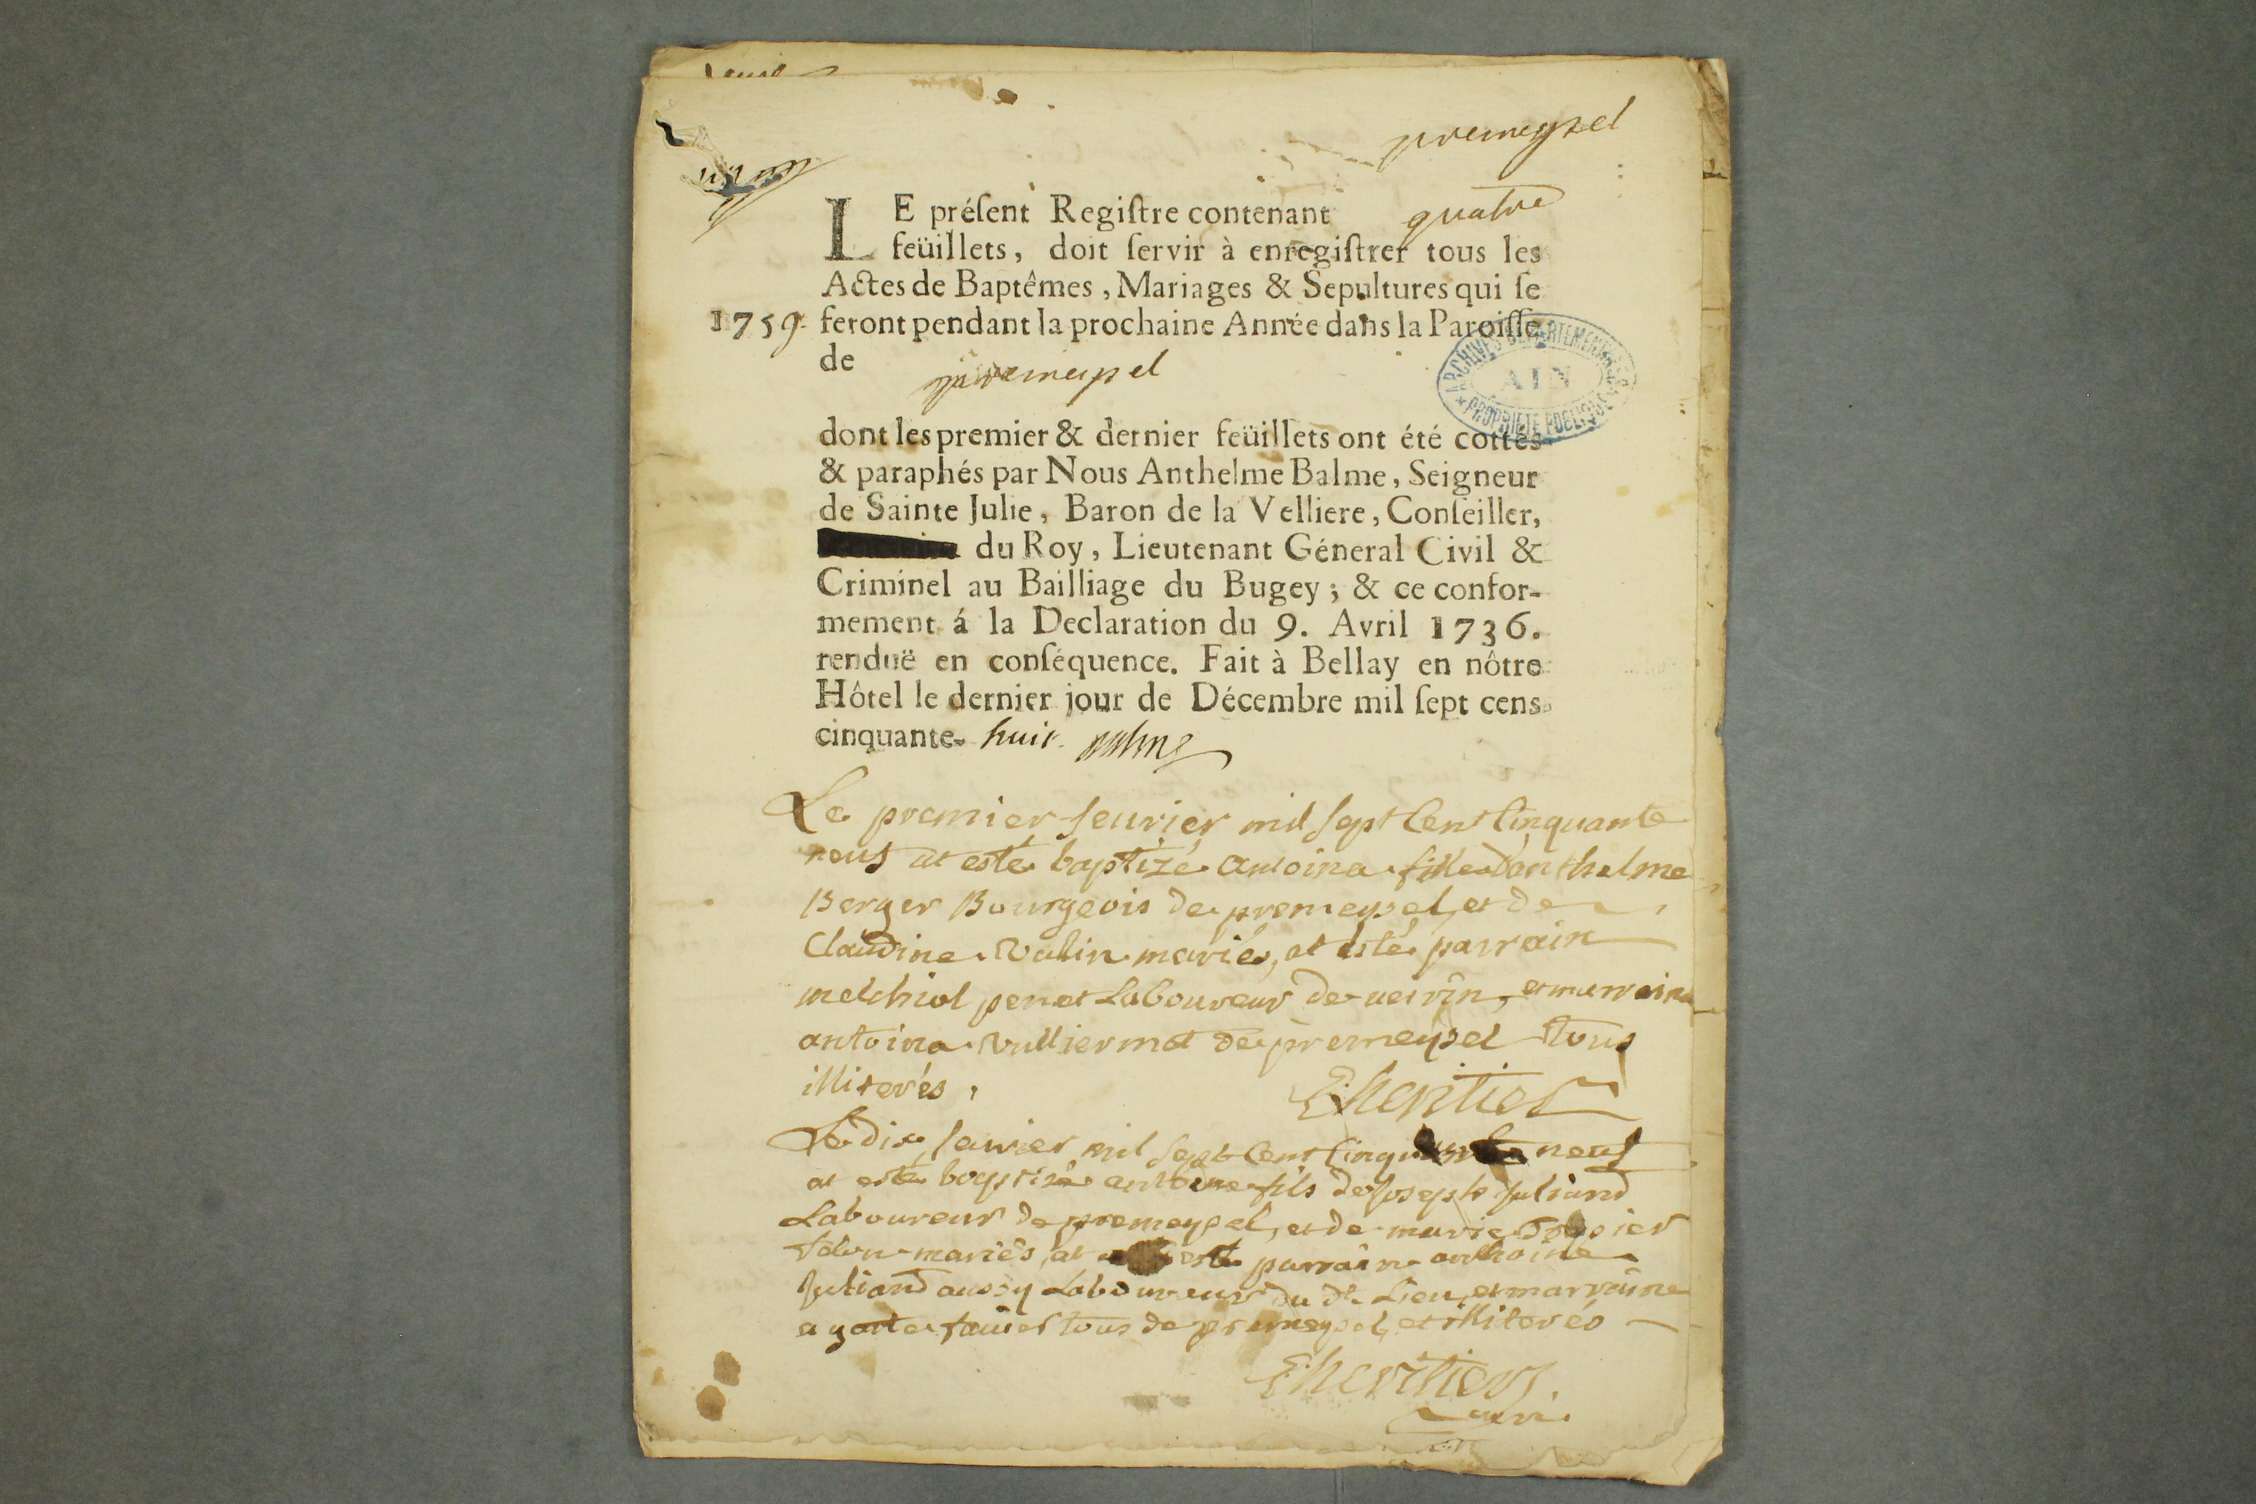 premeyzel
un
LE préſent Regiſtre contenant quatre
feüillets, doit ſervir à enregiſtrer tous les
Actes de Baptêmes, Mariages & Sepultures qui ſe
1759. feront pendant la prochaine Année dans la Paroiſſe
de premeyzel
ARCHIVES DEPARTEMENTALES
AIN
PROPRIETE PUBLIQUE
dont les premier & dernier feüillets ont été cottés
& paraphés par Nous Anthelme Balme, Seigneur
de Sainte Julie, Baron de la Velliere, Conſeiller,
du Roy, Lieutenant Géneral Civil &
Criminel au Bailliage du Bugey; & ce confor-
mement á la Declaration du 9. Avril 1736.
renduë en conſéquence. Fait à Bellay en nôtre
Hôtel le dernier jour de Décembre mil ſept cens
cinquante- huit Balme
Le premier feurier mil sept Cent Cinquante
neuf at esté baptizé antoina fille d'anthelme
Berger Bourgeois de premeyzel, et de
Claudine Vulin mariés, at esté parrain
melchiol penet Laboureur de ueirin, et marraine
antoina Vulliermot de premeyzel tous
illiterés,
Lheritier
Le dix feurier mil sept Cent Cinquante neuf
at esté baptizé antoine fils de Joseph Juliand
Laboureur de premeyzel, et de marie
mariés, at esté parrain anthoine
Juliand aussy Laboureur du dt. Lieu, et marraine
tous de premeyzel, et illiterés
Lheritier,
curé.